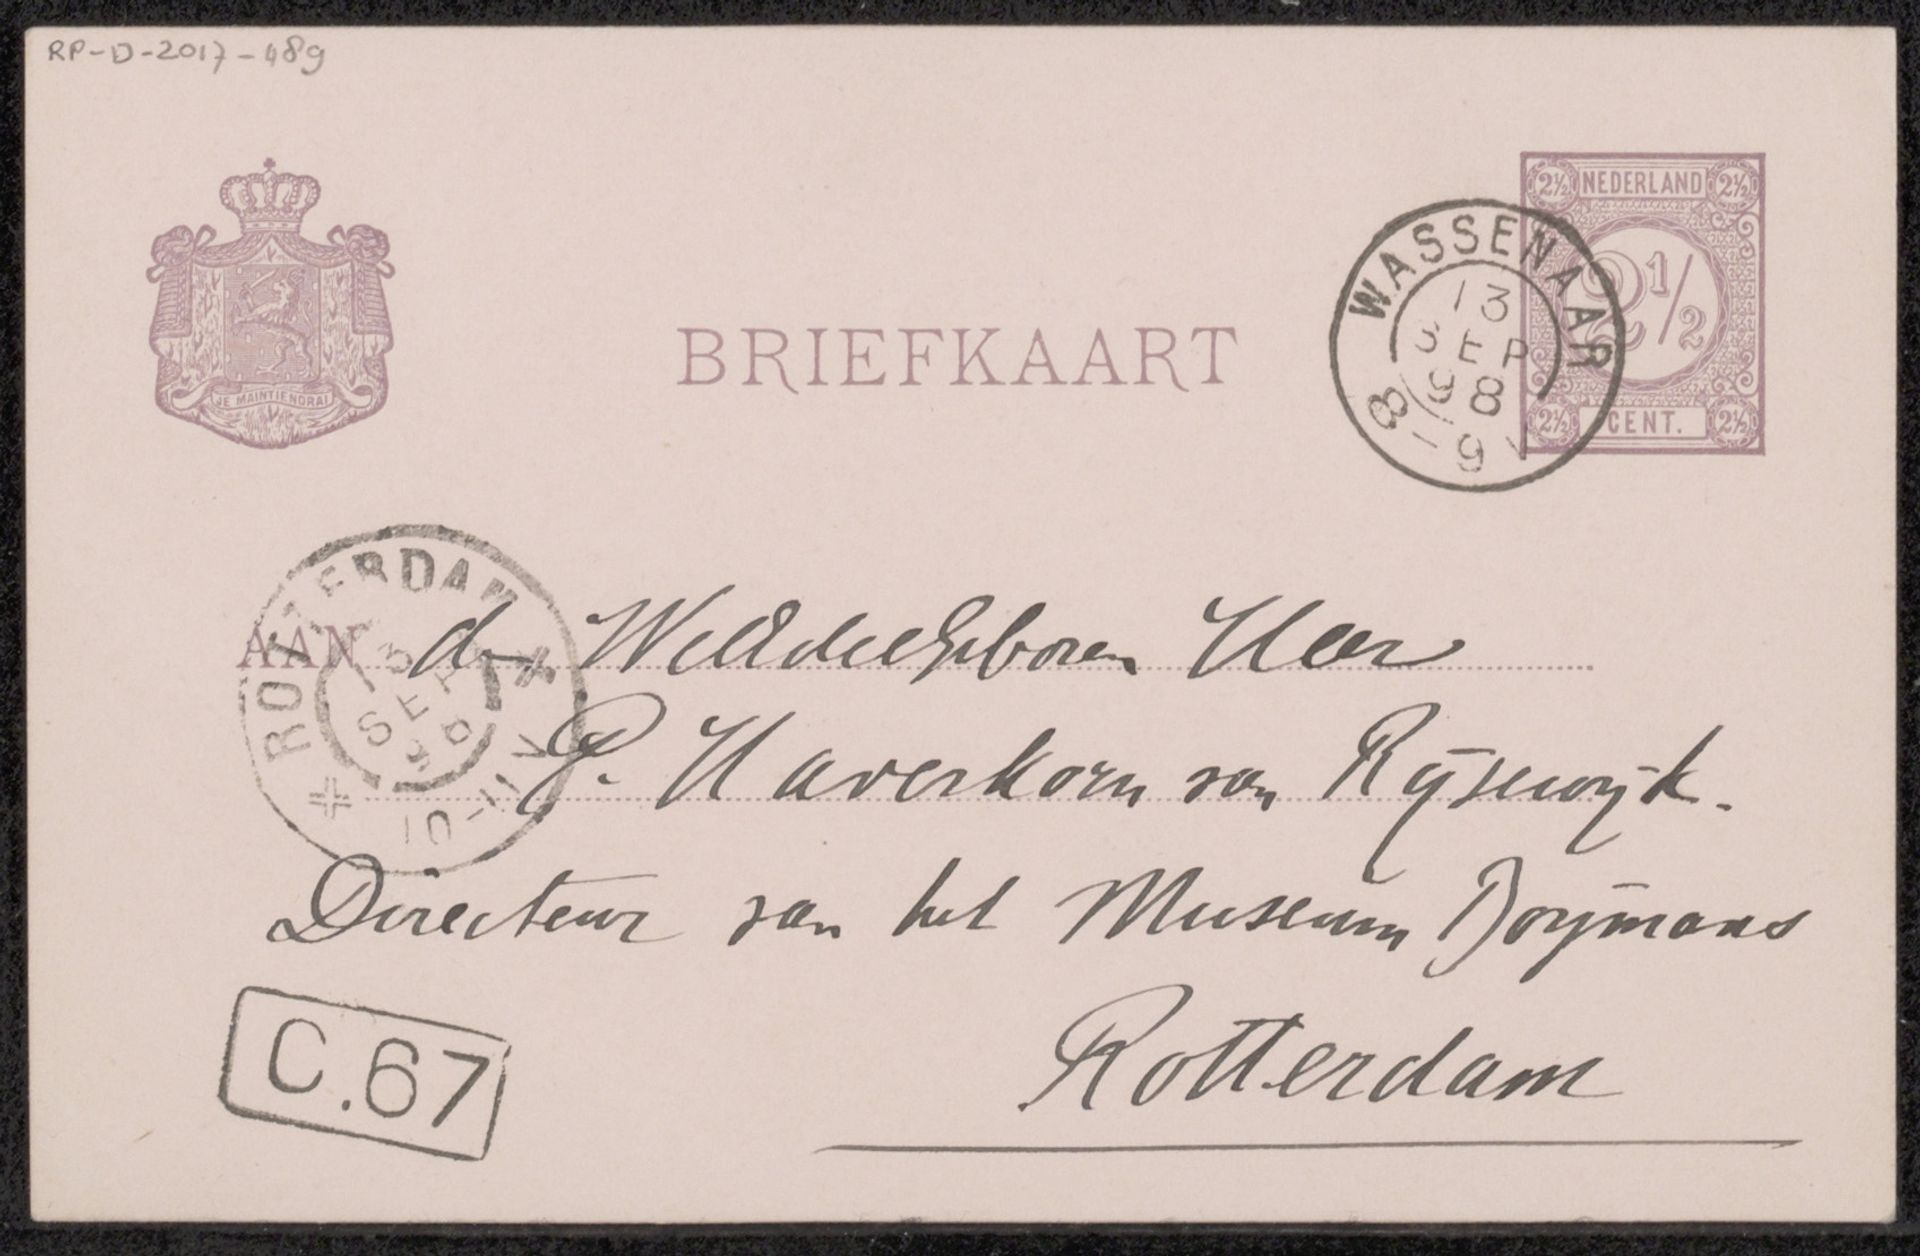 RP-D-2017-489
JE MAINTIENDRAI
BRIEFKAART
2½ NEDERLAND 2½
2 1/2
2½ CENT. 2½
WASSENAAR
13
SEP
98
8-9V
ROTTERDAM
13
SEP
98
10-11V
AAN den WelEdelGeboren Heer
P. Haverkorn van Rijsewijk.
Directeur van het Museum Boymans
Rotterdam
C.67